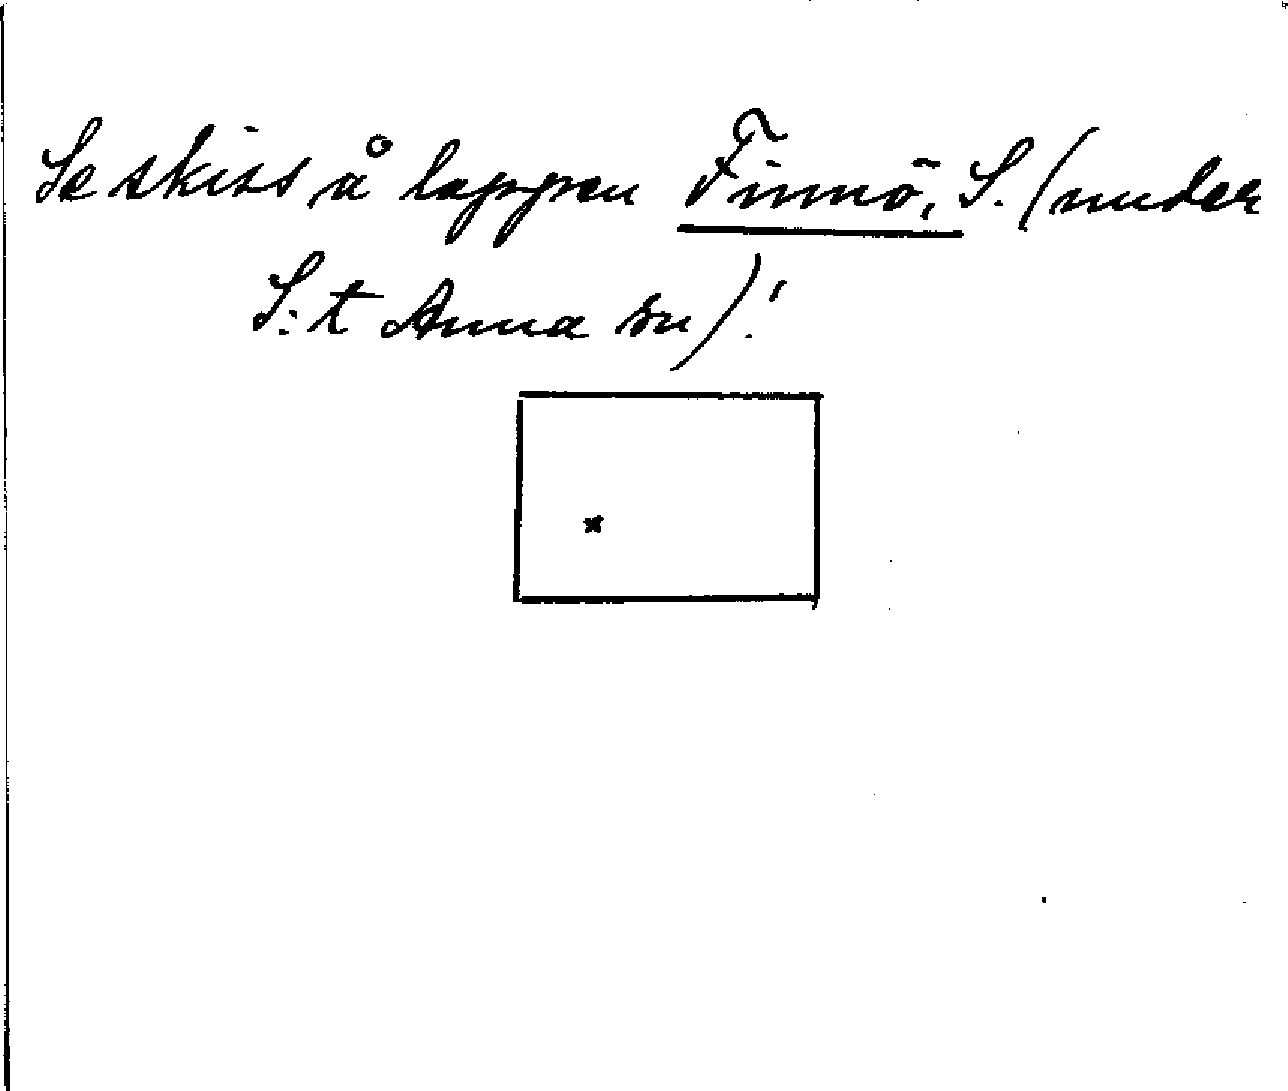 Se skiss å lappen Finnö, S. (under
S:t Anna sn)!